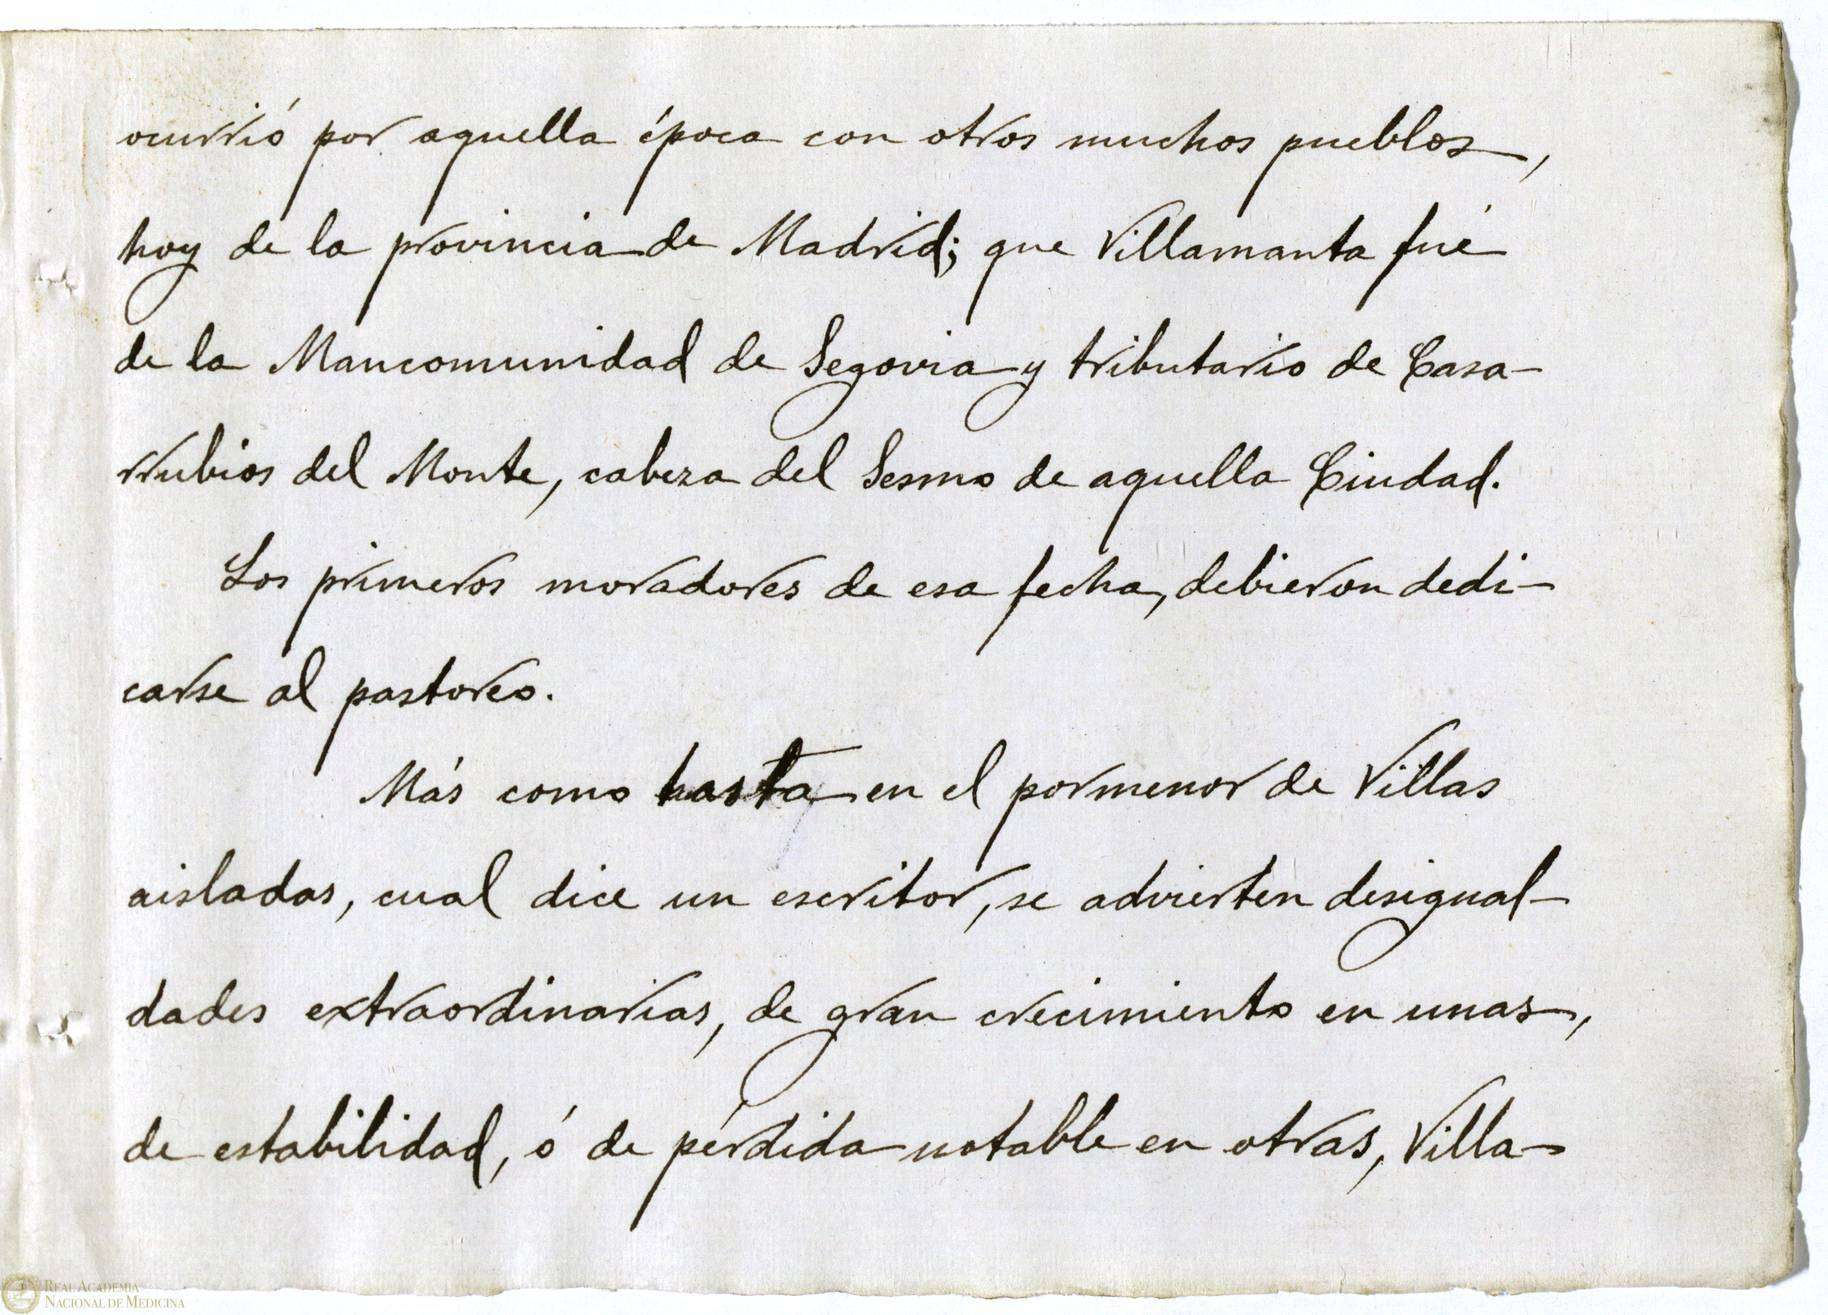 ocurrió por aquella época con otros muchos pueblos,
hoy de la provincia de Madrid; que Villamanta fué
de la Mancomunidad de Segovia y tributario de Casa-
rrubios del Monte, cabeza del Sesmo de aquella Ciudad.
Los primeros moradores de esa fecha, debieron dedi-
carse al pastoreo.
Más como hasta en el pormenor de Villas
aisladas, cual dice un escritor, se advierten desigual-
dades extraordinarias, de gran crecimiento en unas,
de estabilidad, ó de pérdida notable en otras, Villa-
REAL ACADEMIA
NACIONAL DE MEDICINA